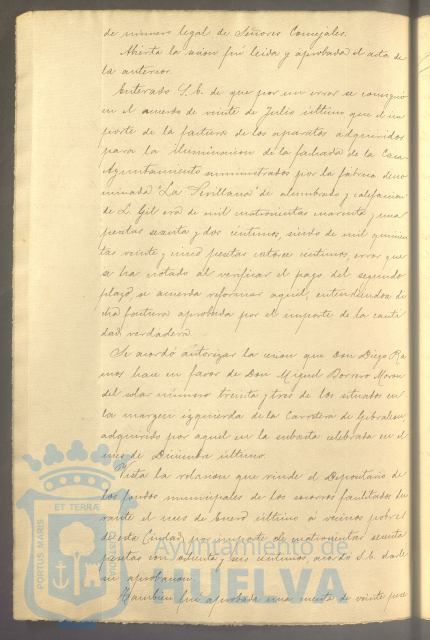 de número legal de Señores Concejales.
Abierta la sesion fué leida y aprobada el acta de
la anterior.
Enterado S.E. de que por un error se consignó
en el acuerdo de veinte de Julio último que el im
porte de la factura de los aparatos adquiridos
para la iluminacion de la fachada de la Casa
Ayuntamiento suministrados por la fabrica deno
minada "La Sevillana" de alumbrado y calefaccion
de L. Gil era de mil cuatrocientas cuarenta y una
pesetas sesenta y dos céntimos, siendo de mil quinien
tas veinte y cinco pesetas catorce centimos, error que
se ha notado al verificar el pago del segundo
plazo, se acuerda reformar aquel, entendiendose di
cha factura aprobada por el importe de la canti
dad verdadera.
Se acordó autorizar la cesion que Don Diego Ra
mos hace en favor de Don Miguel Borrero Moron
del solar número treinta y tres de los situados en
la margen izquierda de la Carretera de Gibraleon,
adquirido por aquel en la subasta celebrada en el
mes de Diciembre último.
Vista la relacion que rinde el Depositario de
los fondos municipales de los socorros facilitados du
rante el mes de Enero último á vecinos pobres
de esta Ciudad por importe de cuatrocientas sesenta
pesetas con ochenta y seis centimos, acordó S.E. darle
su aprobacion.
Tambien fué aprobada una cuenta de veinte pese
PORTUS MARIS ET TERRAE CUSTODIA
Ayuntamiento de
HUELVA